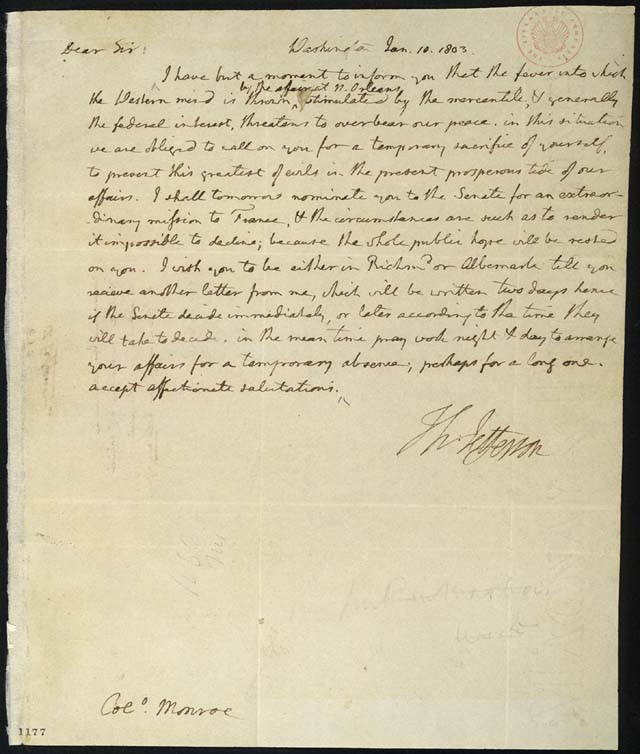 Dear Sir
Washington Jan. 10. 1803.
I have but a moment to inform you that the fever into which
by the affair at N. Orleans
the Western mind is thrown, stimulated by the mercantile, & generally
the federal interest, threatens to overbear our peace. in this situation
we are obliged to call on you for a temporary sacrifice of yourself,
to prevent this greatest of evils in the present prosperous tide of our
affairs. I shall tomorrow nominate you to the Senate for an extraor-
dinary mission to France, & the circumstances are such as to render
it impossible to decline; because the whole public hope will be rested
on you. I wish you to be either in Richmd. or Albemarle till you
recieve another letter from me, which will be written two days hence
if the Senate decide immediately, or later according to the time they
will take to decide. in the mean time pray work night & day to arrange
your affairs for a temporary absence; perhaps for a long one.
accept affectionate salutations.
Th: Jefferson
Colo. Monroe
1177